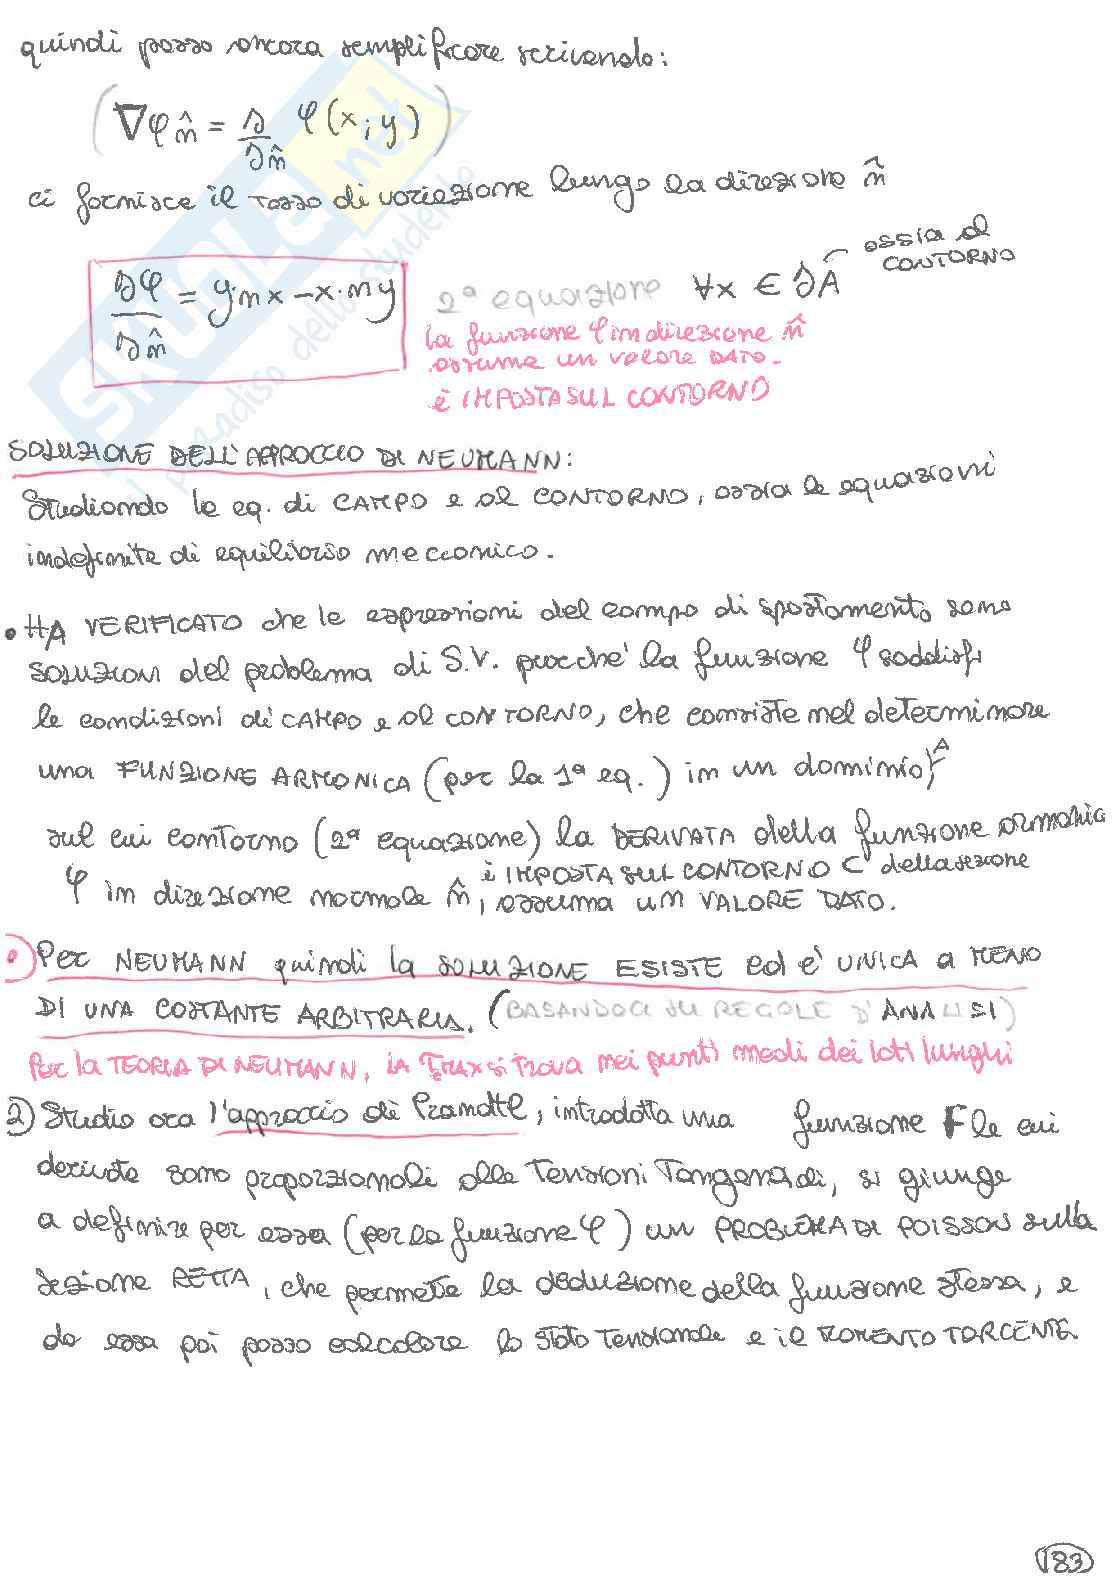 quindi posso ancora semplificare scrivendo:
(∇φ n̂ = ∂/∂n̂ φ(x; y))
ci fornisce il tasso di variazione lungo la direzione n̂
∂φ/∂n̂ = y·nx − x·ny 2ª equazione ∀x ∈ ∂A ossia al CONTORNO
la funzione φ in direzione n̂
assume un valore DATO.
è IMPOSTA SUL CONTORNO
SOLUZIONE DELL'APPROCCIO DI NEUMANN:
Studiando le eq. di CAMPO e al CONTORNO, ossia le equazioni
indefinite di equilibrio meccanico.
• HA VERIFICATO che le espressioni del campo di spostamento sono
soluzioni del problema di S.V. purché la funzione φ soddisfi
le condizioni di CAMPO e al CONTORNO, che consiste nel determinare
una FUNZIONE ARMONICA (per la 1ª eq.) in un dominio A
sul cui contorno (2ª equazione) la DERIVATA della funzione armonica
φ in direzione normale n̂, è IMPOSTA SUL CONTORNO C della sezione
assuma UN VALORE DATO.
• Per NEUMANN quindi la SOLUZIONE ESISTE ed è UNICA A MENO
DI UNA COSTANTE ARBITRARIA. (BASANDOCI SU REGOLE D'ANALISI)
Per la TEORIA DI NEUMANN, LA τMAX si trova nei punti medi dei lati lunghi
2) Studio ora l'approccio di Prandtl, introdotta una funzione F le cui
derivate sono proporzionali alle Tensioni Tangenziali, si giunge
a definire per essa (per la funzione φ) un PROBLEMA DI POISSON sulla
sezione RETTA, che permette la deduzione della funzione stessa, e
da essa poi posso calcolare lo stato Tensionale e il MOMENTO TORCENTE.
183
SKUOLA.net
il paradiso dello studente